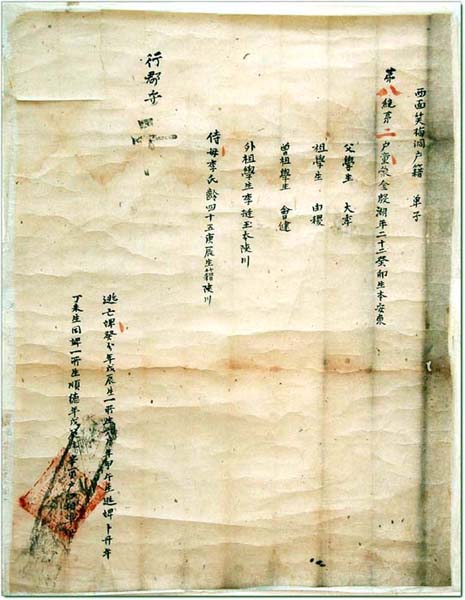 西面芙梅洞戶籍 單子
第八統第二戶童蒙金殷湖年二十二癸卯生本安東
父學生 大奉
祖學生 由稷
曾祖學生 會健
外祖學生李挺玉本陜川
侍母李氏齡四十五庚辰生籍陜川
逃亡婢癸 年戊辰生一所生 逃婢卜丹年
丁未生同婢一所生順德年戊
行郡守